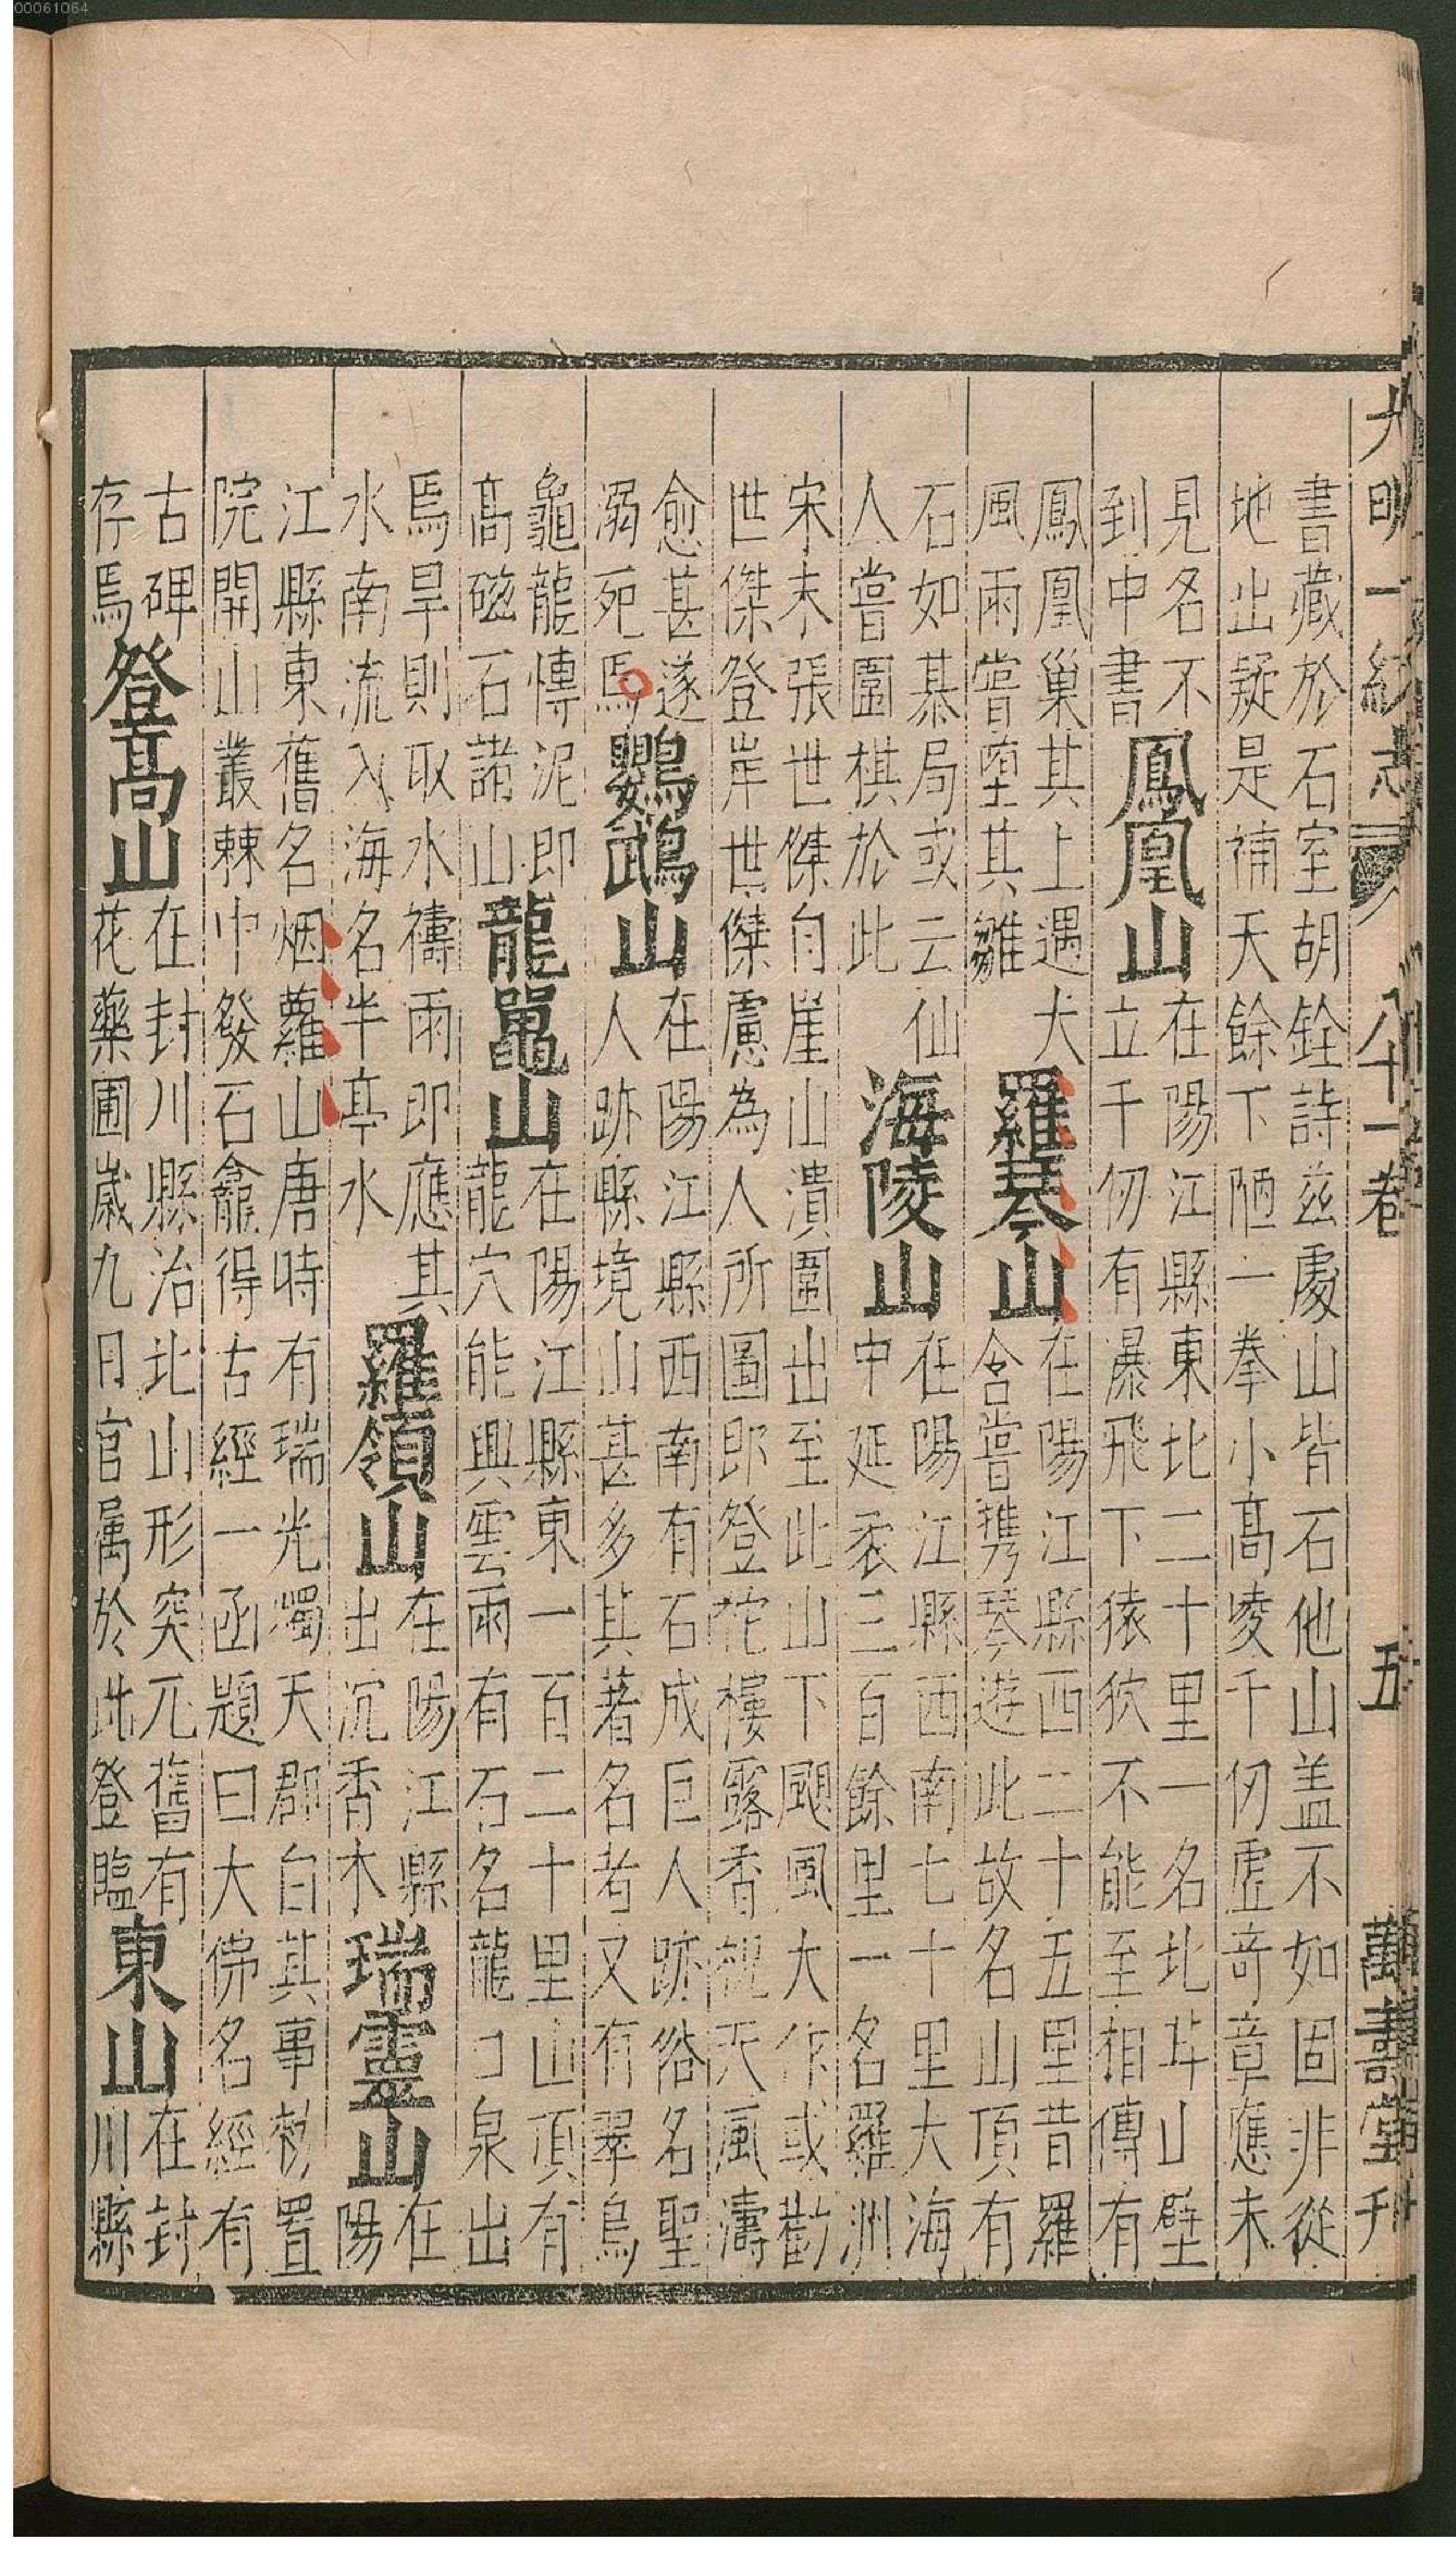 大明一統志 八十一卷 五 萬壽堂刊
書藏於石室胡銓詩茲處山皆石他山盖不如固非從
地出疑是補天餘下陋一拳小高凌千仞虛竒章應未
見名不
到中書
鳳凰山
在陽江縣東北二十里一名北斗山壁
立千仞有瀑飛下猿狖不能至相傳有
鳳凰巢其上遇大
風雨嘗墮其雛
羅琴山
在陽江縣西二十五里昔羅
含嘗携琴遊此故名山頂有
石如棊局或云仙
人嘗圍棋於此
海陵山
在陽江縣西南七十里大海
中延袤三百餘里一名羅洲
宋末張世傑自崖山潰圍出至此山下颶風大作或勸
世傑登岸世傑慮為人所圖即登柁樓露香祝天風濤
愈甚遂
溺死焉
鸚鵡山
在陽江縣西南有石成巨人跡俗名聖
人跡縣境山甚多其著名者又有翠烏
龜龍慱泥即
高磁石諸山
龍黽山
在陽江縣東一百二十里山頂有
龍穴能興雲雨有石名龍口泉出
焉旱則取水禱雨即應其
水南流入海名半亭水
羅嶺山
在陽江縣
出沉香木
瑞靈山
在
陽
江縣東舊名烟蘿山唐時有瑞光燭天郡白其事勑置
院開山叢棘中發石龕得古經一函題曰大佛名經有
古碑
存焉
登高山
在封川縣治北山形突兀舊有
花藥圃歲九日官属於此登臨
東山
在封
川縣